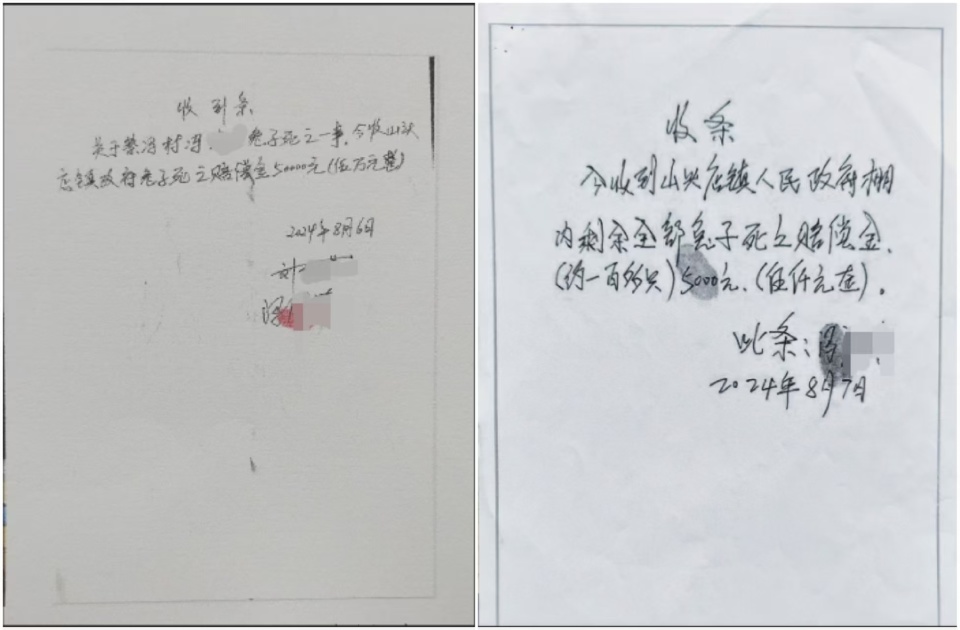 收到条
关于蔡冯村冯 兔子死之一事，今收山头
店镇政府兔子死之赔偿金50000元(伍万元整)
2024年8月6日
刘
收条
今收到山头店镇人民政府棚
内剩余全部兔子死之赔偿金，
(约一百多只)5000元、(伍仟元整)。
此条:
2024年8月7日